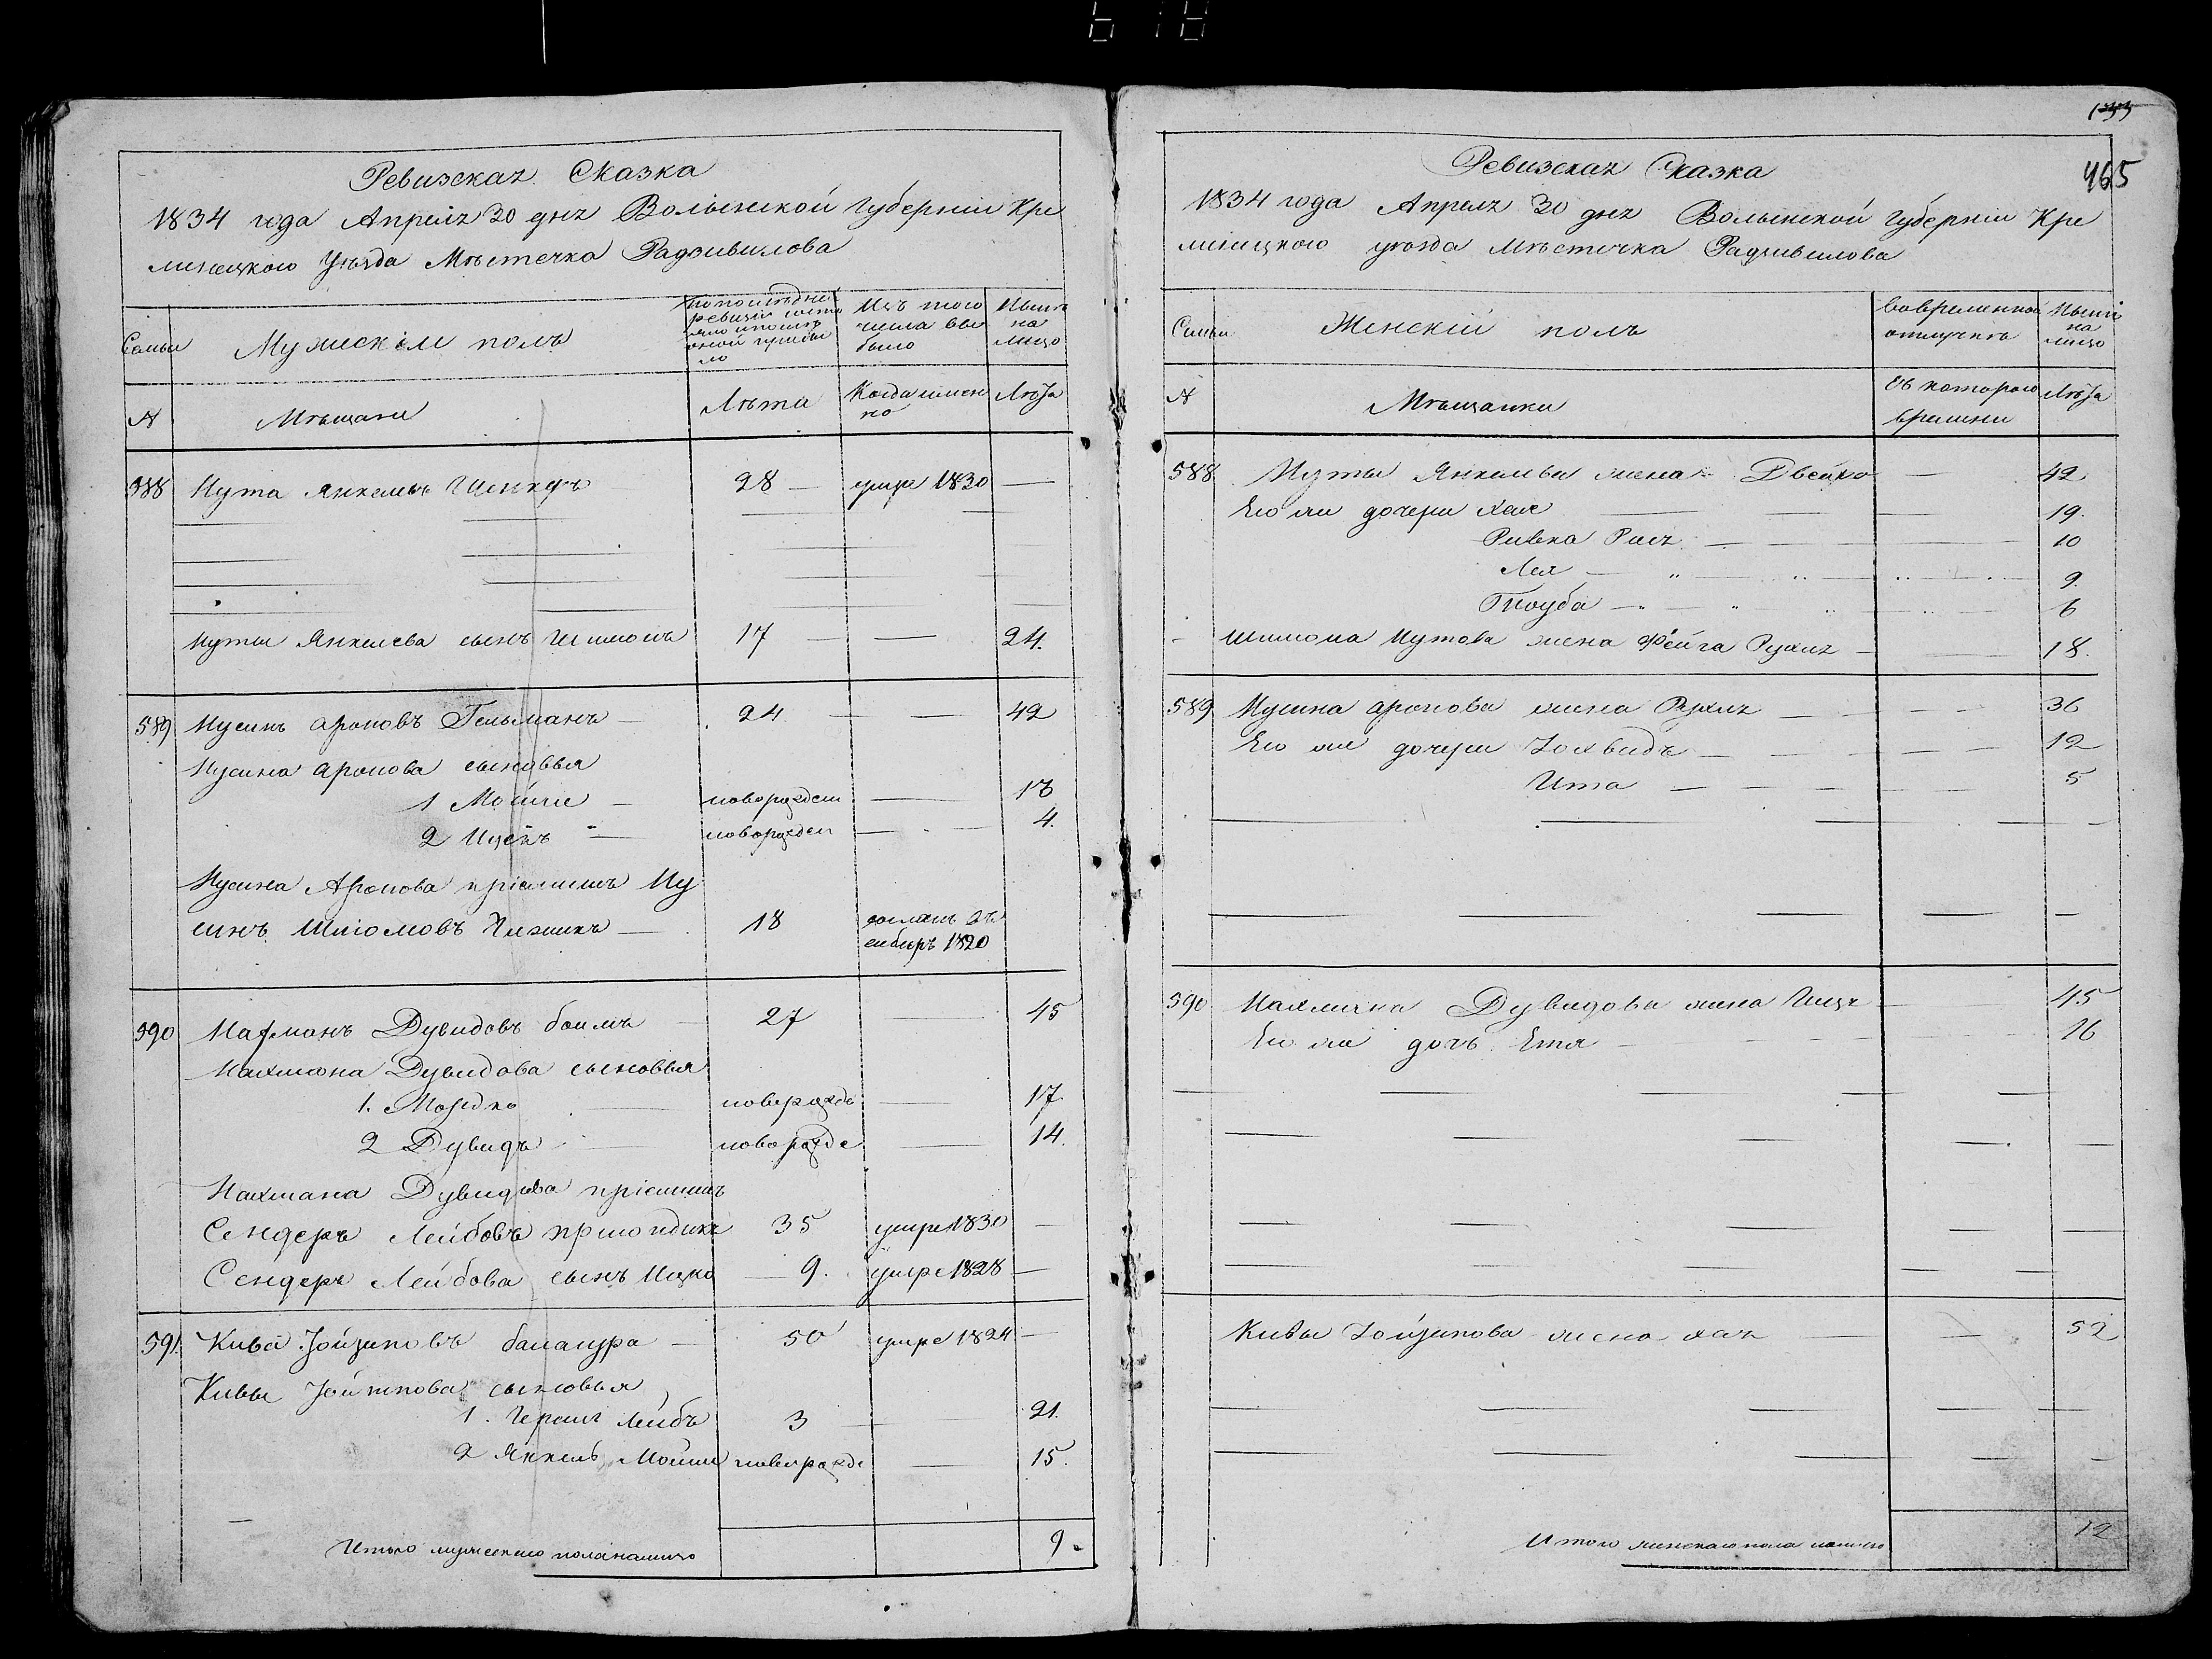 133
465
Ревизская Сказка
1834 года Апреля 30 дня Волынской Губерніи Кре
менецкого Уѣзда Мѣстечка Радзивилова
Семьи
Мужеской полъ
по последней
ревизіи состо
яло и после
оной прибы
ло
Изъ того
числа вы
было
Ныне
на
лицо
№
Мѣщане
Лѣта
Когда имен
но
Лѣта
588 Нута Янкелевъ 28 — умре 1830 —
Нуты Янкелева сынъ Шимонъ 17 — — 24.
589 Нусинъ Ароновъ Гельманъ — 24 — — 42
Нусина Аронова сыновья
1 Мошко — новорожден — 18
2 Ицекъ — новорожден — 4.
Нусина Аронова пріемышъ Ну
синъ Шліомовъ — 18 сосланъ въ
сибирь 1820
590 Нахманъ Дувидовъ — 27 — 45
Нахмана Дувидова сыновья
1. Мордко — новорожде — 17.
2 Дувидъ — новорожде — 14.
Нахмана Дувидова пріемышъ
Сендеръ Лейбовъ 35 умре 1830 —
Сендеръ Лейбова сынъ Ицко 9. умре 1828 —
591. Кива Іойзиповъ — 50 умре 1824 —
Кивы Іойзипова сыновья
1. Гершъ Лейбъ 3 — 21.
2 Янкель Мошко новорожде — 15.
Итого мужеского пола налицо 9.
Ревизская Сказка
1834 года Апреля 30 дня Волынской Губерніи Кре
менецкого уѣзда Мѣстечка Радзивилова
Семьи
Женскій полъ
во временной
отлучкѣ
Ныне
на
лицо
№
Мѣщанки
съ которого
времени
Лѣта
588 Нуты Янкельва жена Двейра — 42
Его же дочери Хая — 19.
Ривка Рися — 10
Лея — 9.
Тауба — 6
Шимона Нутова жена Фейга Рухля — 18.
589 Нусина Аронова жена Рухля — 36
Его же дочери Іохвидъ — 12
Ита — 5
590 Нахмана Дувидова жена — 45
Его же дочь Етя — 16
Кивы Іойзипова жена Хая — 52
Итого женского пола налицо 12